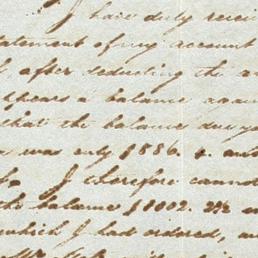 I have duly recei
statement of my account
after deducting the a
appears a balance again
that the balance due yo
was only $886. 4. and
I therefore cannot
the balance $1002.
which I had ordered, an